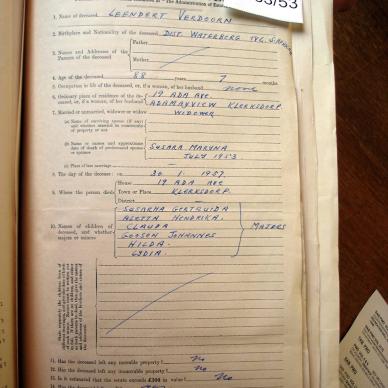 53/53
1. Name of deceased, LEENDERT VERDOORN
2. Birthplace and Nationality of the deceased, DIST. WATERBERG TVL. S. AFRICAN
3. Names and Addresses of the Parents of the deceased
Father
Mother
4. Age of the deceased, 88 years 7 months
5. Occupation in life of the deceased, or, if a woman, of her husband none
6. Ordinary place of residence of the deceased, or, if a woman, of her husband 19 ADA AVE
ADAMAYVIEW KLERKSDORP.
7. Married or unmarried, widower or widow WIDOWER
(a) Name of surviving spouse (if any) and whether married in community of property or not
(b) Name or names and approximate date of death of predeceased spouse or spouses SUSARA MARYNA
JULY 1953
(c) Place of last marriage
8. The day of the decease: on 30. 1. 1957.
9. Where the person died
House 19 ADA AVE
Town or Place KLERKSDORP.
District
10. Names of children of deceased, and whether majors or minors
SUSARHA GERTRUIDA
ALETTA HENDRIKA.
CLAUDA
GOOSEN JOHANNES
HILDA.
LYDIA.
MAJORS
11. Has the deceased left any movable property? No
12. Has the deceased left any immovable property? No
13. Is it estimated that the estate exceeds £300 in value? No